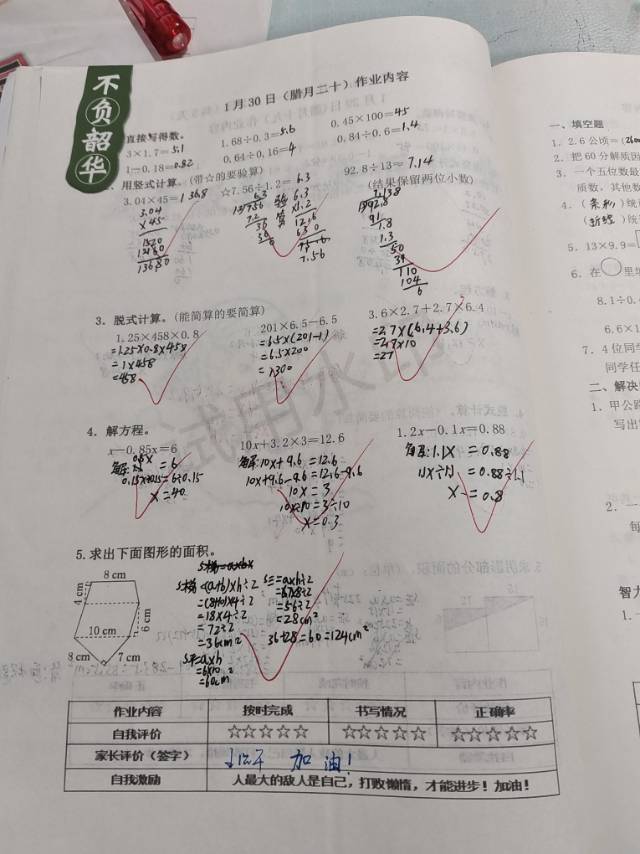 不负韶华
1月30日（腊月二十）作业内容
直接写得数。
1.68÷0.3=5.6
0.45×100=45
3×1.7=5.1
0.64÷0.16=4
0.84÷0.6=1.4
1-0.18=0.82
用竖式计算。（带☆的要验算）
3.04×45=136.8
☆7.56÷1.2=6.3
92.8÷13≈7.14
（结果保留两位小数）
3.04
×45
1520
136.80
3. 脱式计算。（能简算的要简算）
1.25×458×0.8
=1.25×0.8×458
=1×458
=458
201×6.5-6.5
=6.5×(201-1)
=6.5×200
=1300
3.6×2.7+2.7×6.4
=2.7×(6.4+3.6)
=2.7×10
=27
4. 解方程。
x-0.85x=6
0.15x÷0.15=6÷0.15
x=40
10x+3.2×3=12.6
解:10x+9.6=12.6
10x+9.6-9.6=12.6-9.6
10x=3
10x÷10=3÷10
x=0.3
1.2x-0.1x=0.88
解:1.1x=0.88
1.1x÷1.1=0.88÷1.1
x=0.8
5. 求出下面图形的面积。
8 cm
4 cm
10 cm
6 cm
8 cm
7 cm
S梯=(a+b)×h÷2
=(8+10)×4÷2
=18×4÷2
=72÷2
=36cm²
S平=a×h
=6×10
=60cm²
S三=a×h÷2
=8×7÷2
=56÷2
=28cm²
36+28+60=124cm²
作业内容 按时完成 书写情况 正确率
自我评价 ☆☆☆☆☆ ☆☆☆☆☆ ☆☆☆☆☆
家长评价（签字） 加油！
自我激励 人最大的敌人是自己，打败懒惰，才能进步！加油！
试用水印
一、填空题
1. 2.6公顷=(
2. 把60分解质因
3. 一个五位数最
质数，其他数
4.
5. 13×9.9=
6. 在○里填
8.1÷0.
6.6×1
7. 4位同学
同学任
二、解决
1. 甲公路
写出
2. 一
每
智力
1.